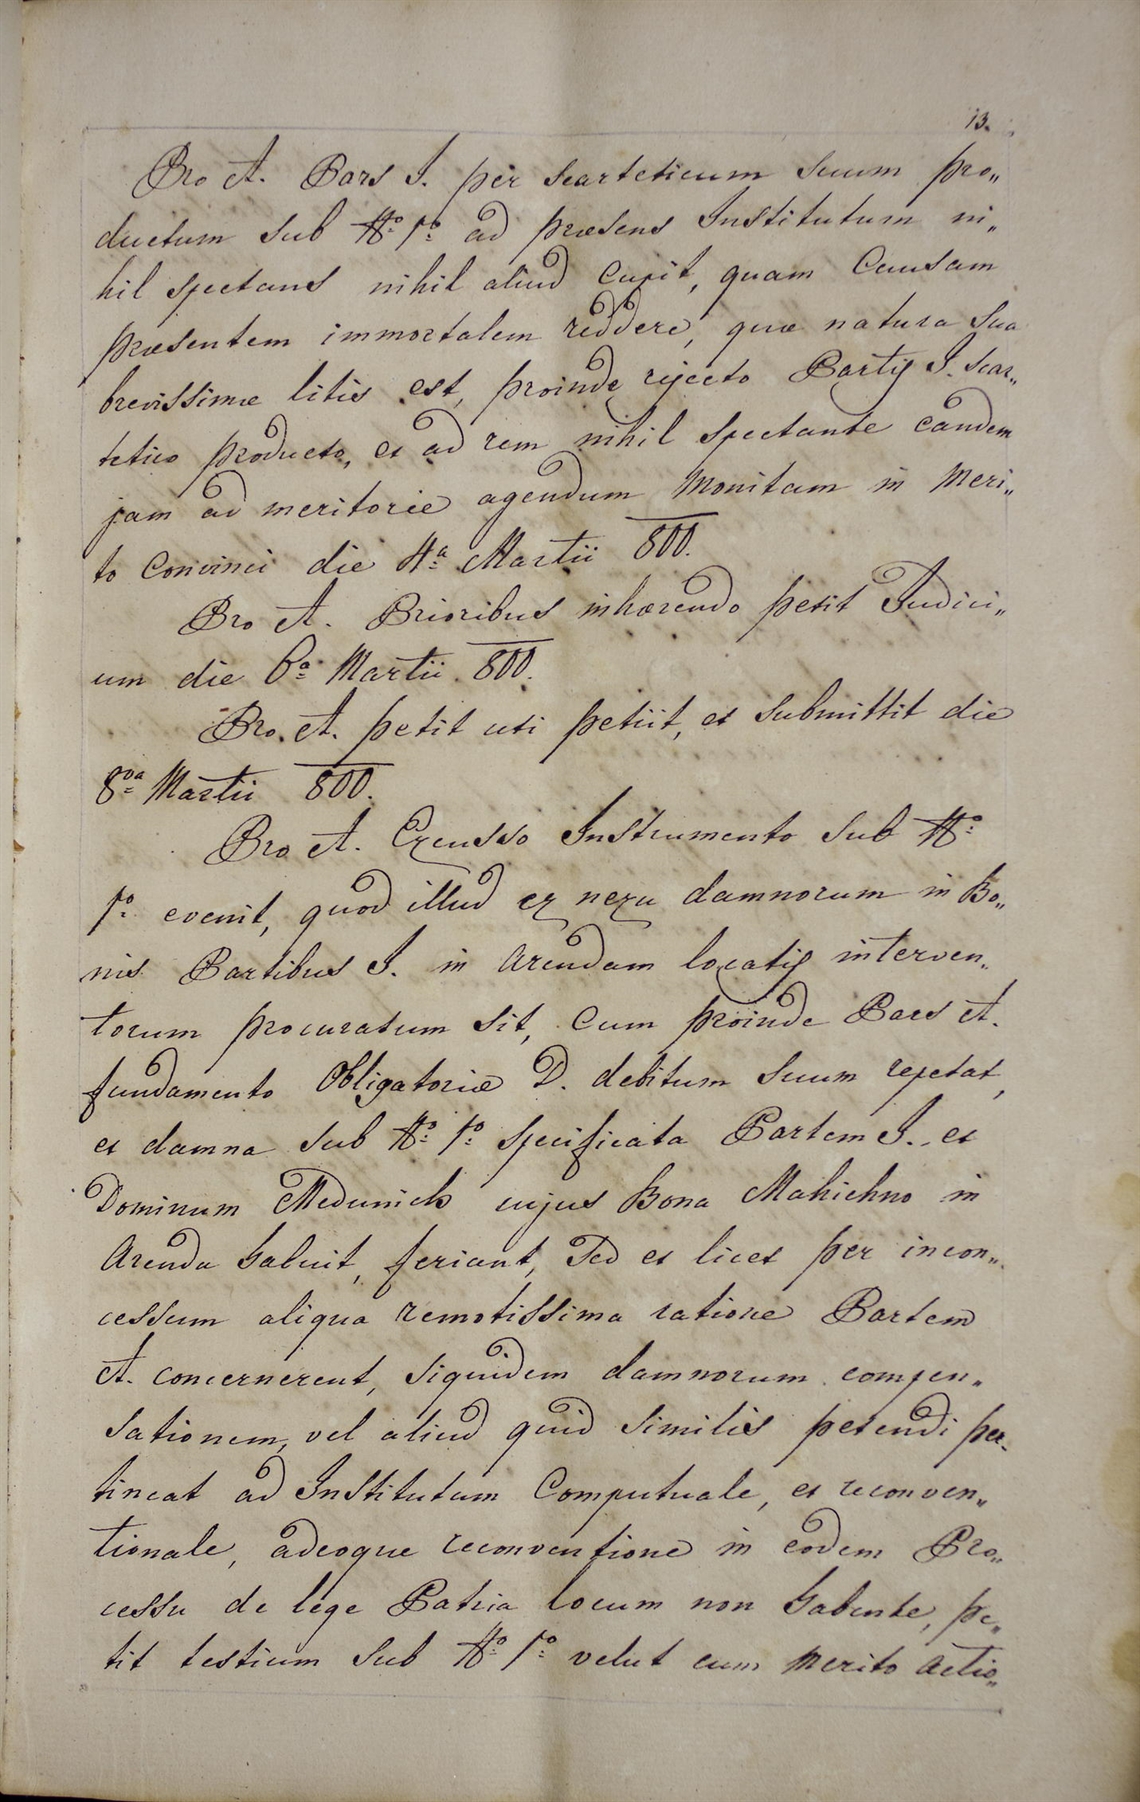 13.
Pro A. Pars I. per scarteticum suum pro„
ductum sub No 1o ad præsens Institutum ni„
hil spectans nihil aliud cupit, quam Causam
præsentem immortalem reddere, quæ natura sua
brevissimæ litis est, proinde rejecto Partis I. scar„
tetico producto, et ad rem nihil spectante eandem
jam ad meritorie agendum monitam in Meri„
to Convinci die 4a Martii 800.
Pro A. Prioribus inhærendo petit Judici„
um die 6a Martii 800.
Pro A. petit uti petiit, et submittit die
8va Martii 800.
Pro A. Excusso Instrumento sub No
1o evenit, quod illud ex nexu damnorum in Bo„
nis Partibus I. in Arendam locatis interven„
torum procuratum sit, Cum proinde Pars A.
fundamento Obligatoriæ D. debitum suum repetat,
et damna sub No 1o specificata Partem I. et
Dominum Medunich cujus Bona Mahichno in
Arenda habuit, feriant, Sed et licet per incon„
cessum aliqua remotissima ratione Partem
A. concernerent, siquidem damnorum compen„
sationem, vel aliud quid similis petendi per„
tineat ad Institutum Computuale, et reconven„
tionale, adeoque reconventione in eodem Pro„
cessu de lege Patria locum non habente, pe„
tit testium sub No 1o velut cum merito Actio„